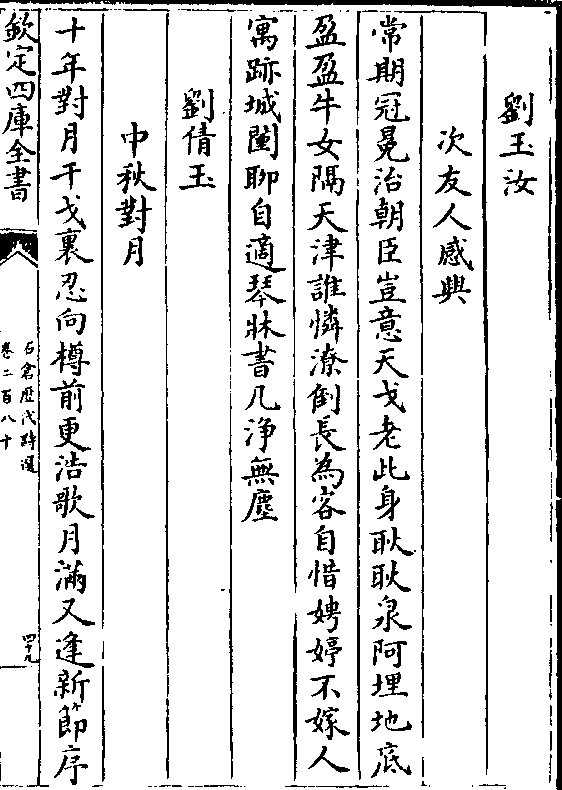 劉玉汝
次友人感興
常期冠冕治朝臣豈意天戈老此身耿耿泉阿埋地底
盈盈牛女隔天津誰憐潦倒長為客自惜娉婷不嫁人
寓跡城闉聊自適琴牀書几浄無塵
劉倩玉
中秋對月
十年對月干戈裏忍向樽前更浩歌月滿又逢新節序
欽定四庫全書
石倉歷代詩選
卷二百八十
四十九